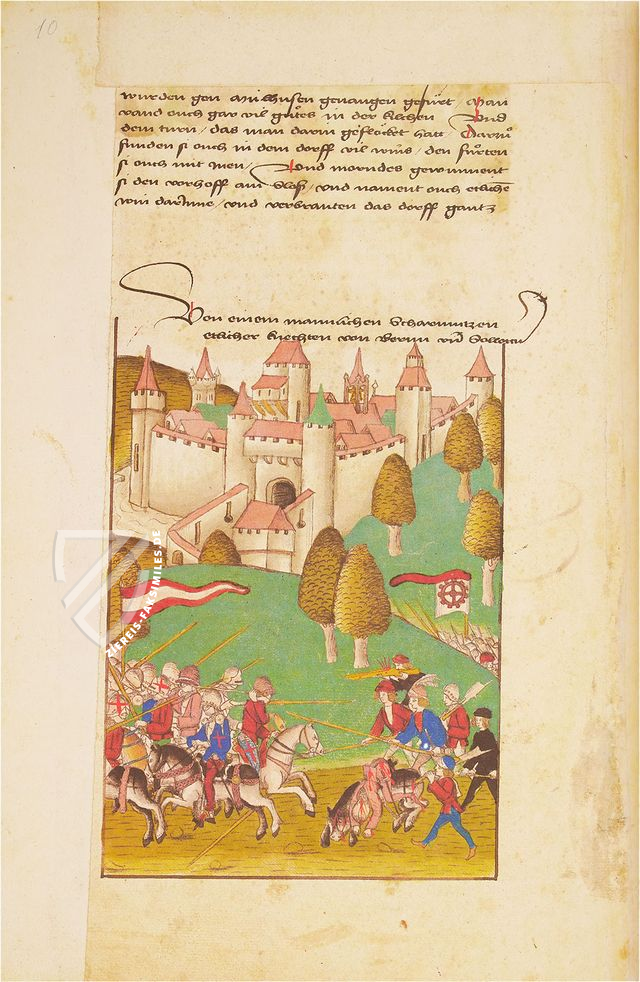 10
wurden gen Mülhusen geuangen gefürt / Man
vand ouch gar vil gůtes in der kilchen Vnd
dem turn / das man darin geflocket hatt / Darzů
funden si ouch in dem dorff vil wins / den fůrten
si ouch mit inen / Vnd morndes gewunnent
si den vorhoff am Sloss / vnd nament ouch etliche
win darinne / vnd verbranten das dorff gantz
Von einem manlichen Scharmutzen
etlicher knechten von Bernn vnd Solloturn
ZIEREIS-FACSIMILES.DE